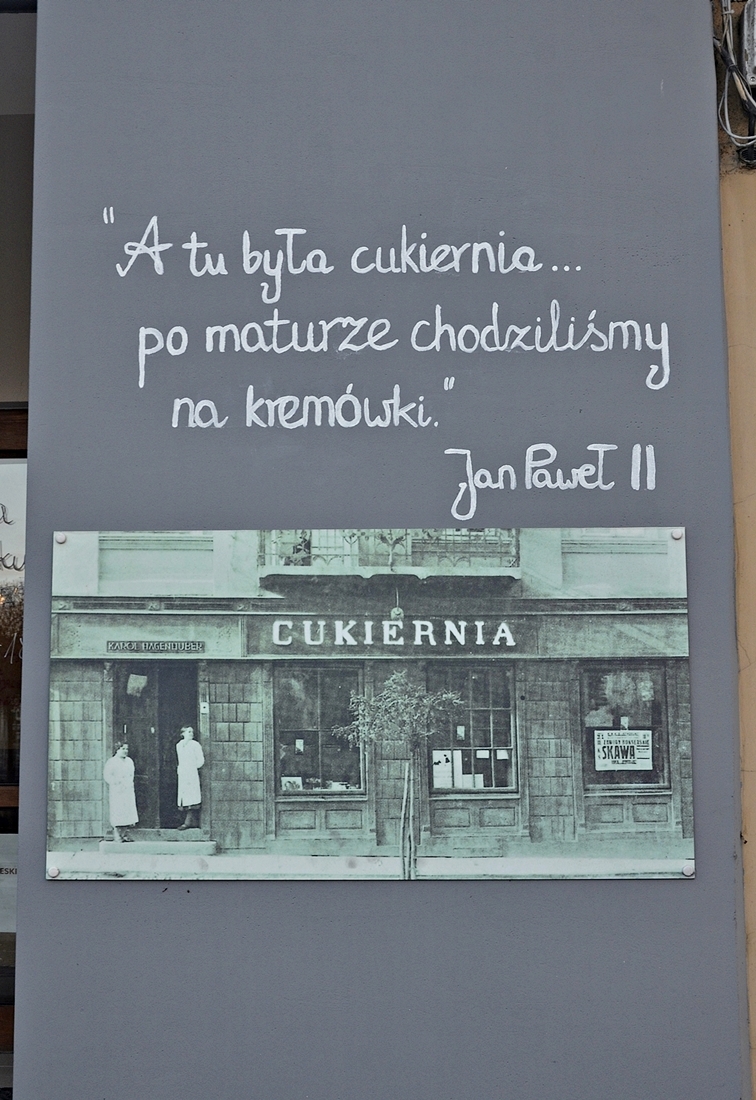 "A tu była cukiernia...
po maturze chodziliśmy
na kremówki."
Jan Paweł II
KAROL HAGENHUBER
CUKIERNIA
SKAWA
ESKI